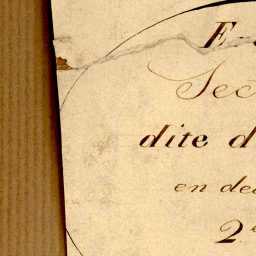 E
Sec
dite d
en deu
2e